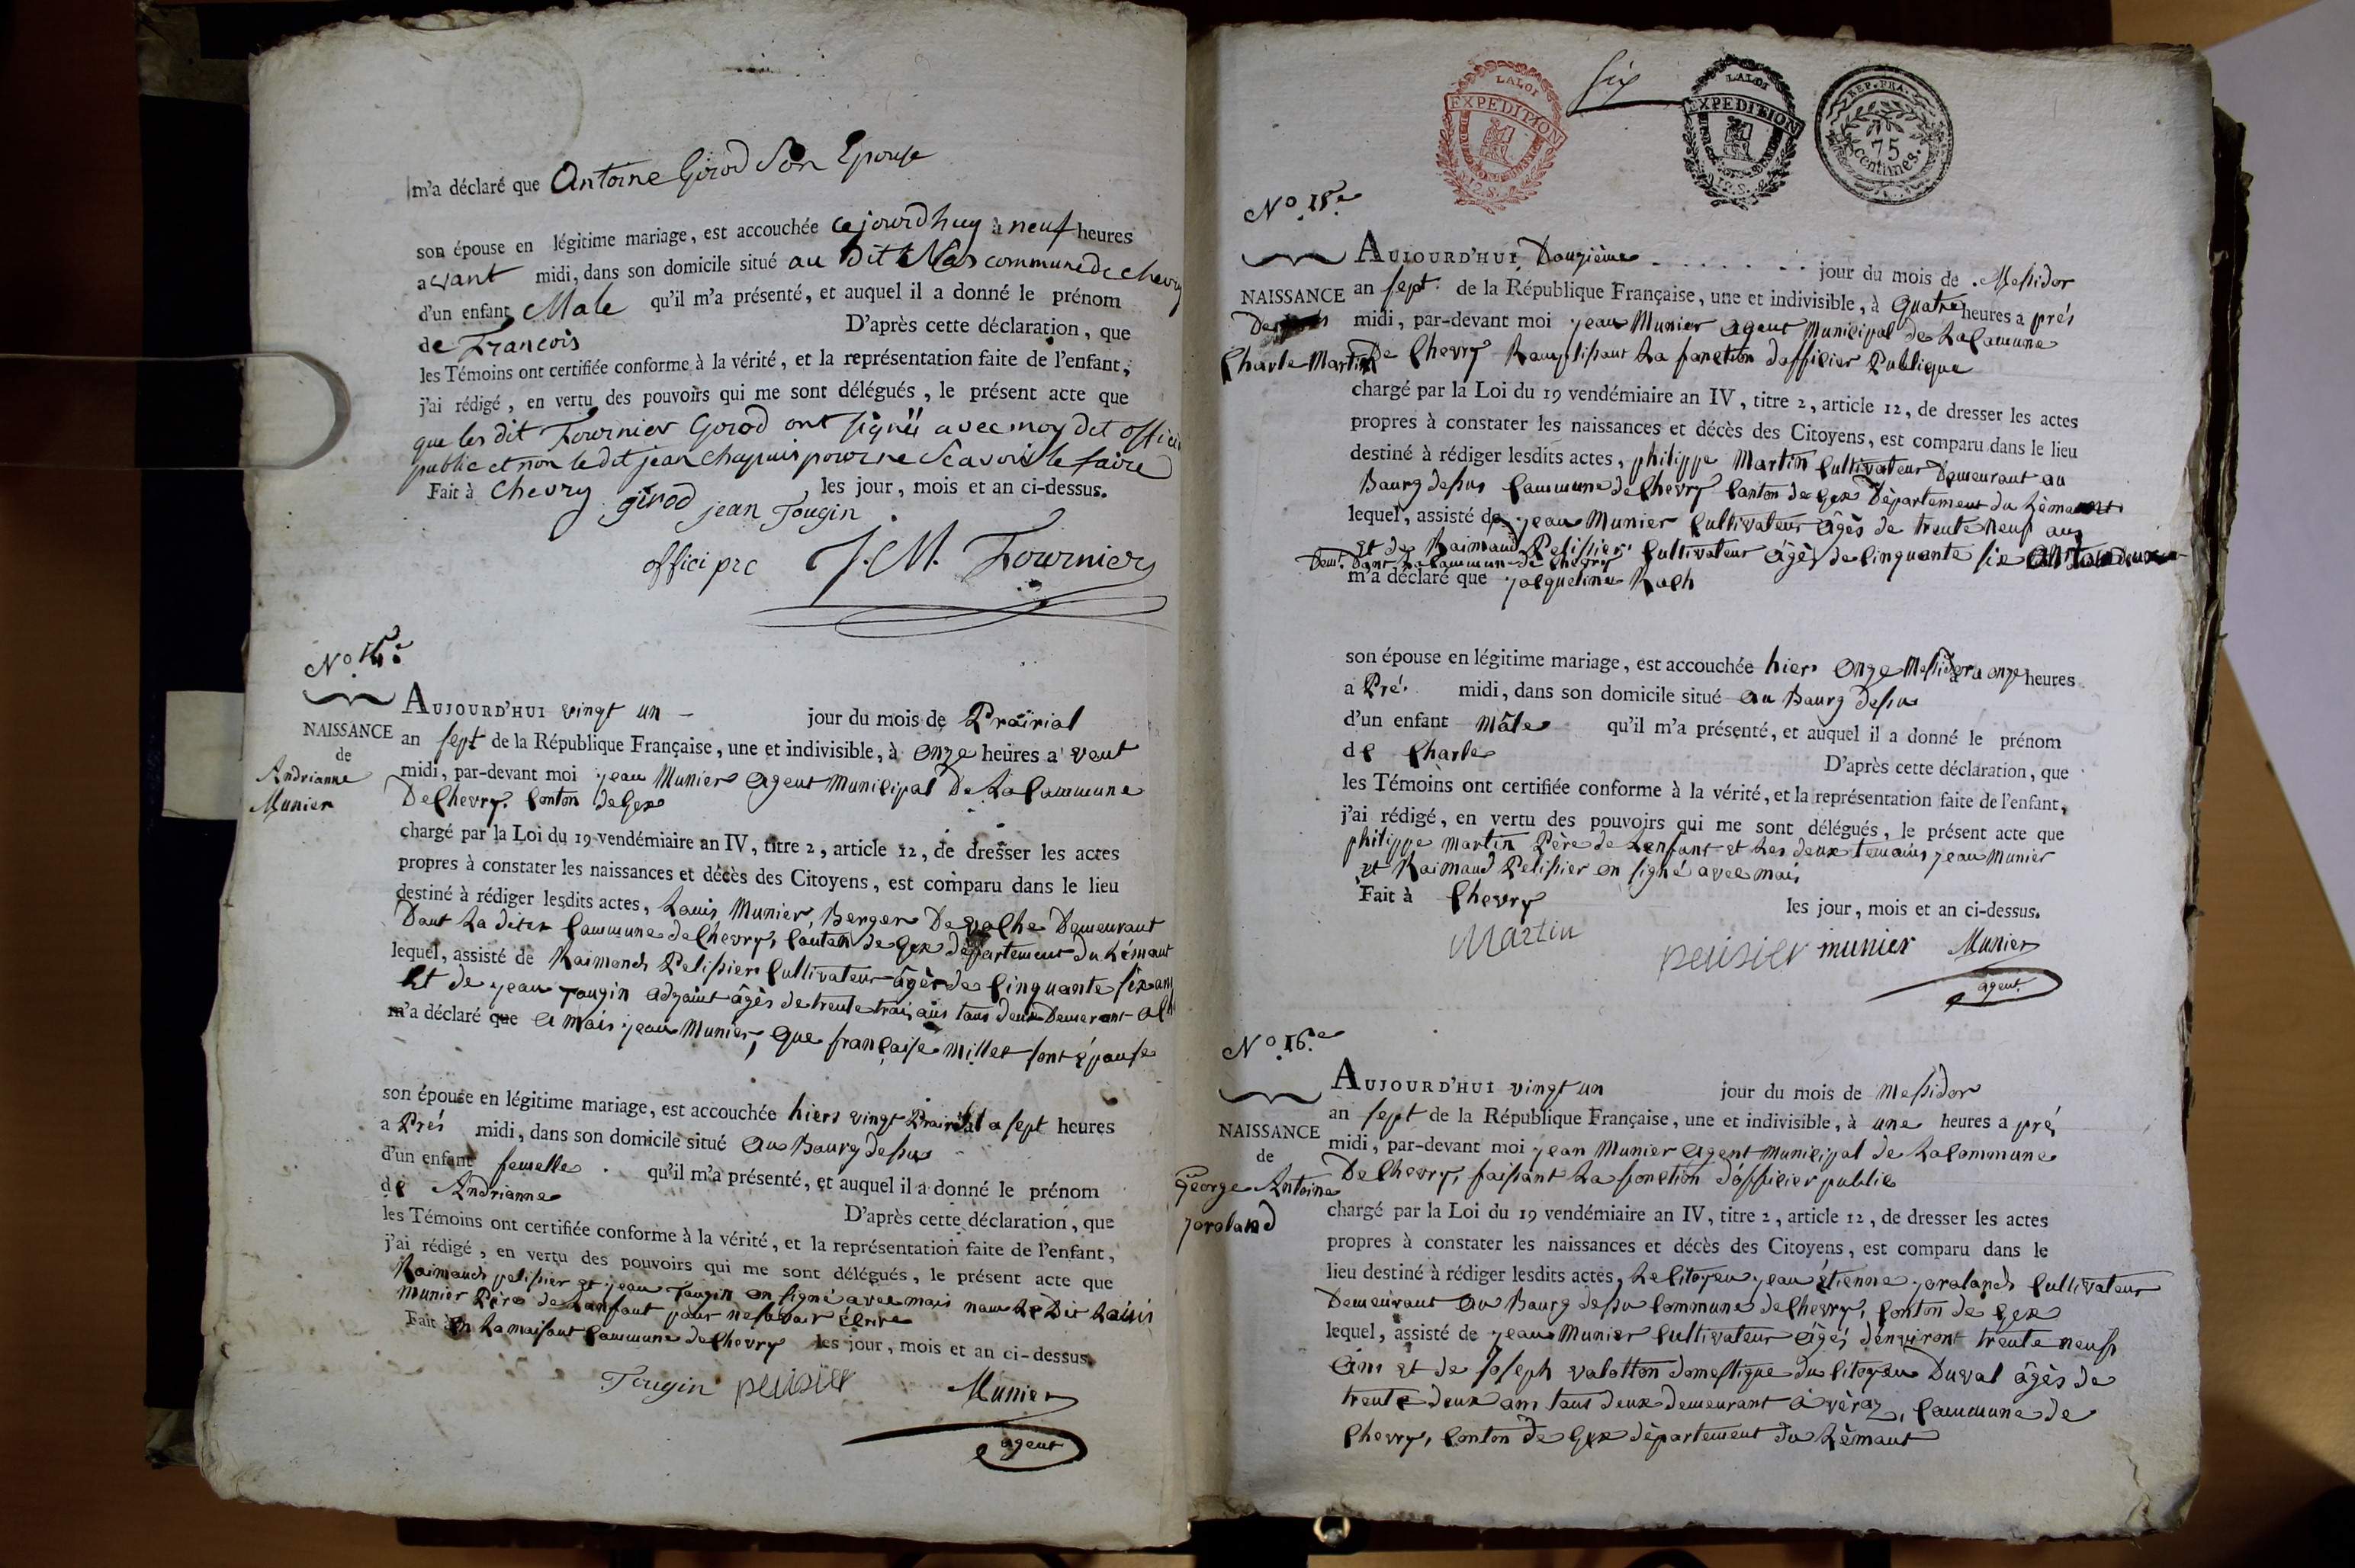 m'a déclaré que Antoine Girod Son Epouse
son épouse en légitime mariage, est accouchée cejourdhuy à neuf heures
avant midi, dans son domicile situé au dit Nas commune de chevry
d'un enfant Male qu'il m'a présenté, et auquel il a donné le prénom
de Francois D'après cette déclaration, que
les Témoins ont certifiée conforme à la vérité, et la représentation faite de l'enfant,
j'ai rédigé, en vertu des pouvoirs qui me sont délégués, le présent acte que
que les dit Fournier Girod ont signéé avec moy dit officier
public et non le dit jean chapuis pour ne Scavoir le faire
Fait à Chevry les jour, mois et an ci-dessus.
girod jean Tougin
offici pre J. M. Fournier
No. 14e
AUJOURD'HUI vingt un - jour du mois de Prairial
NAISSANCE an sept de la République Française, une et indivisible, à onze heures a vent
de
Andrianne midi, par-devant moi jean Munier agent Municipal De La Commune
Munier De Chevry. Conton de Gex
chargé par la Loi du 19 vendémiaire an IV, titre 2, article 12, de dresser les actes
propres à constater les naissances et décès des Citoyens, est comparu dans le lieu
destiné à rédiger lesdits actes, Louis Munier, Berger De vache Demeurant
Dant La dite Commune de Chevry, Conton de Gex département du Lémant
lequel, assisté de Raimond Pelissier Cultivateur âgès de Cinquante six ans
Et de jean Tougin adjoint âgès de trente trois ans tous deux Demerant
m'a déclaré que a mois jean Munier, que françoise millet sont épouse
son épouse en légitime mariage, est accouchée hiers vingt Prairial a sept heures
a Prés midi, dans son domicile situé au Bourg dessus
d'un enfant femelle qu'il m'a présenté, et auquel il a donné le prénom
de Andrianne D'après cette déclaration, que
les Témoins ont certifiée conforme à la vérité, et la représentation faite de l'enfant,
j'ai rédigé, en vertu des pouvoirs qui me sont délégués, le présent acte que
Raimond pelissier et jean Tougin on signé avec mois nom Le Dit Louis
Munier Père de Lanfant pour ne savoir écrire
Fait en La maisont Commune de Chevry les jour, mois et an ci-dessus.
Tougin pelisier Munier
agent
LA LOI
EXPEDITION
12. S.
six
LA LOI
EXPEDITION
12. S.
REP. FRA.
75
centimes.
No. 15e
AUJOURD'HUI Douzième jour du mois de Messidor
NAISSANCE an sept de la République Française, une et indivisible, à quatre heures a prés
midi, par-devant moi jean Munier agent Municipal de La Comune
Charle Martin De Chevry Remplissant La fonction d'officier Publique
chargé par la Loi du 19 vendémiaire an IV, titre 2, article 12, de dresser les actes
propres à constater les naissances et décès des Citoyens, est comparu dans le lieu
destiné à rédiger lesdits actes, philippe Martin Cultivateur Demeurant au
Bourg dessus Commune de Chevry Canton de Gex Département du Lémant
lequel, assisté de jean Munier Cultivateur âgès de trente neuf ans
et de Raimond Pelissier Cultivateur âgès de Cinquante six
Dem. Dant La Commun de Chevry
m'a déclaré que jacqueline Roch
son épouse en légitime mariage, est accouchée hier onze Messidor a onze heures
a Pré. midi, dans son domicile situé au Bourg dessus
d'un enfant mâle qu'il m'a présenté, et auquel il a donné le prénom
de Charle D'après cette déclaration, que
les Témoins ont certifiée conforme à la vérité, et la représentation faite de l'enfant,
j'ai rédigé, en vertu des pouvoirs qui me sont délégués, le présent acte que
philippe martin Père de Lenfant et Les deux temoins jean Munier
et Raimond Pelissier on signé avec mois
Fait à Chevry les jour, mois et an ci-dessus.
Martin pelisier munier Munier
agent.
No. 16e
AUJOURD'HUI vingt un jour du mois de Messidor
an sept de la République Française, une et indivisible, à une heures a pré,
NAISSANCE midi, par-devant moi jean Munier agent Municipal de La Commune
de
George Antoine De Chevry, faissant La fonction d'officier public
joroland chargé par la Loi du 19 vendémiaire an IV, titre 2, article 12, de dresser les actes
propres à constater les naissances et décès des Citoyens, est comparu dans le
lieu destiné à rédiger lesdits actes, Le Citoyen jean étienne joroland Cultivateur
Demeurant au Bourg dessu Commune de Chevry, Conton de Gex
lequel, assisté de jean Munier Cultivateur âgés d'environt trente neuf
ans et de joseph valotton domestique du Citoyen Duval âgès de
trente deux ans tous deux demeurant à vèraz, Commune de
Chevry, Conton de Gex département du Lèmant